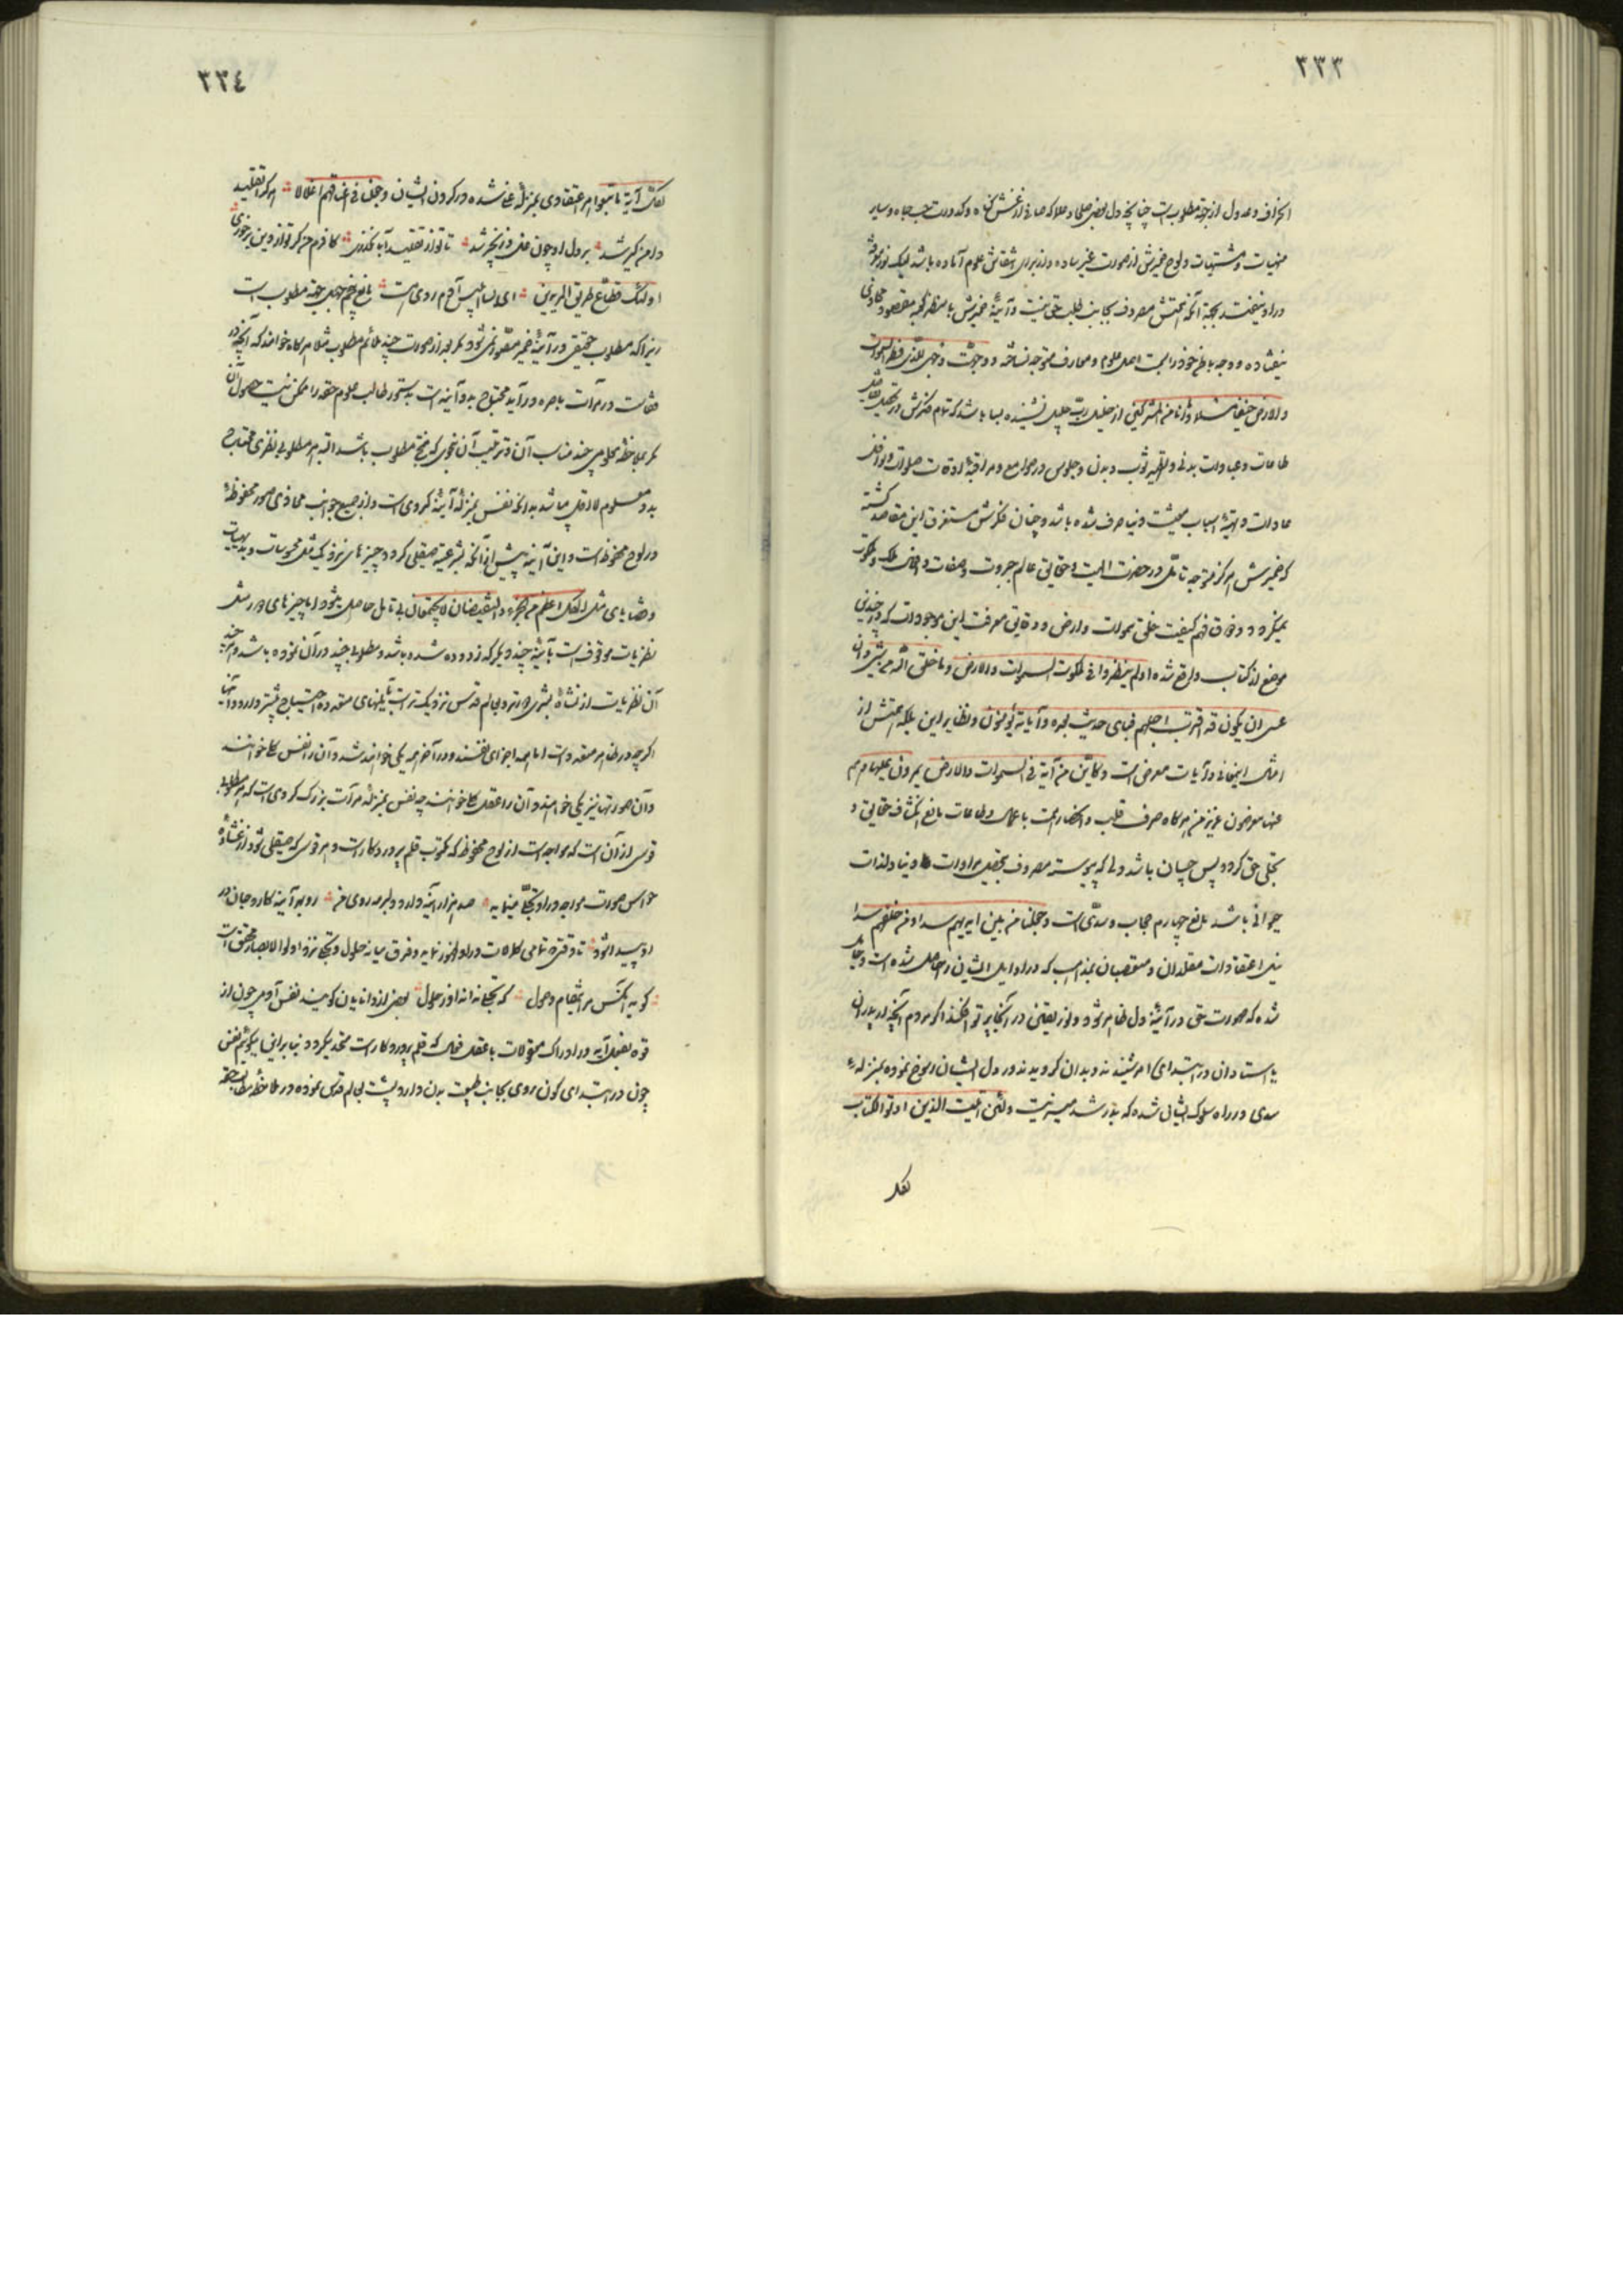 ٣٣٣
انحراف و عدول از جهة مطلوبست چنانچه دل بعضی صلحا و صلاکه صافی از غش کناه و کدورت حب جاه و سایر
منهیات و مشتهیات و لوح ضمیرش از صورت غیر ساده و از برای نقاش علوم آماده باشد لیک نور معرفة
دراو نیفتد بجهة آنکه همتش مصروف بجانب طلب حق نیست و آینهٔ ضمیرش با منظر کعبه مقصود محاذی
نیفتاده و وجه باطن خود را بسمت اصل علوم و معارف متوجه نساخته و وجهت وجهی للذی فطر السموات
والارض حنیفا مسلما و ما انا من المشرکین از خلیل رب جلیل نشنیده بسا باشد که تمام فکرش در تحصیل تفاصیل
طاعات و عبادات بدنی و تطهیر ثوب و بدن و جلوس در صوامع و مراقبهٔ اوقات صلوات و نوافل
عادات و تهیهٔ اسباب معیشت دنیا صرف شده باشد و چنان فکرش مستغرق این مقاصد کشته
که ضمیرش هرکز متوجه تأمل در حضرت الهیت و حقایق عالم جبروت و صفات و افعال ملک و ملکوت
نمیکردد و ذوق فهم کیفیت خلق سموات و ارض و دقایق معرفت این موجودات که در چندین
موضع از کتاب واقع شده اولم ینظروا فی ملکوت السموات والارض و ما خلق الله من شیء وان
عسی ان یکون قد اقترب اجلهم فبای حدیث بعده و آیاته یؤمنون و نظایر این بلکه همتش از
امثال اینمعانی و آیات معرض است و کاین من آیة فی السموات والارض یمرون علیها و هم
عنها معرضون عزیز من هرکاه صرف قلب و انحصار همت باعمال و طاعات مانع انکشاف حقایق و
تجلی حق کردد پس چسان باشد دلی که پیوسته مصروف بتحصیل مرادات دنیا و لذات
حیوانی باشد مانع چهارم حجاب و سدی است و جعلنا من بین ایدیهم سدا و من خلفهم سدا
یعنی اعتقادات مقلدان و متعصبان بمذاهب که در اوایل ایشان را حاصل شده است و حجاب
شده که صورت حق در آینهٔ دل ظاهر شود و نور یقینی در آنجا پرتو افکند اکر مردم آنچه از پدران
یا استادان در ابتدای امر شنیدند و بدان کرویدند و در دل ایشان رسوخ نموده بمنزلهٔ
سدی در راه سلوک ایشان شده که بدر شد میسر نیست و لئن اتیت الذین اوتوا الکتاب
بکل
٣٣٤
بکل آیة ما تبعوا هر اعتقادی بمنزلهٔ غل شده در کردن ایشان و جعلنا فی اعناقهم اغلالا هرکرا تقلید
دامن کیر شد بر دل او چون غل و زنجیر شد تا تو از تقلید آبا نکذری کافرم من کر تو از دین برخوری
اولئک قطاع طریق المریدین ای بسا ابلیس آدم روی هست مانع پنجم جهل بجهة مطلوب است
زیرا که مطلوب حقیقی در آینهٔ ضمیر متصور نمی شود مکر بعد از صورت چند ملائم مطلوب مثلا هرکاه خواهند که آنچه در
قفاست در مرآت باصره درآید محتاج بدو آینه است بدستور طالب علوم حقه را ممکن نیست حصول آن
مکر بملاحظهٔ معلومی چند مناسب آن و ترتیب آن بنحوی که منتج مطلوب باشد البته هر مطلوب نظری محتاج
بدو معلوم لااقل میباشد بدانکه نفس بمنزلهٔ آینهٔ کروی است و از جمیع جوانب محاذی صور محفوظهٔ
در لوح محفوظست و این آینه پیش از آنکه بشریعت صیقلی کردد چیزهای نزدیک مثل محسوسات و بدیهیات
و قضایای مثل الکل اعظم من الجزء و النقیضان لا یجتمعان بی تأمل حاصل میشود اما چیزهای دور مثل
نظریات موقوفست بآینهٔ چند دیکر که زدوده شده باشد و مطلوبی چند در آن نموده باشد و هر چند
آن نظریات از نشأهٔ بشری دورتر و بعالم قدس نزدیکتر است بآینهای متعدده احتیاج بیشتر دارد و آنها
اکرچه در ظاهر متعدد است اما همه اجزای نفسند و در آخر همه یکی خواهند شد و آن را نفس کل خوانند
و آن صورتها نیز یکی خواهند و آن را عقل کل خوانند چه نفس بمنزلهٔ مرآت بزرک کروی است که هر مطلوبی
قوسی از آن است که مواجه است از لوح محفوظ که مکتوب قلم پروردکار است و هر قوسی که صیقلی شود از غشاوهٔ
حواس صورت مواجه در او تجلی مینماید صد هزار آینه دارد دلبر مه روی من رو بهر آینه کارد جان در
او پیدا شود تا وقتی تمامی کمالات در او ظهور نماید و فرق میانهٔ حلول و تجلی نزد اولوا الابصار محقق است
کوید آنکس در این مقام فضول که تجلی نداند او ز حلول بعضی از دانایان کویند نفس آدمی چون از
قوه بفعل آید در ادراک معقولات با عقل فعال که قلم پروردکار است متحد میکردد بنابراین میکوئیم نفس
چون در ابتدای کون روی بجانب طبیعت بدن دارد و پشت بعالم قدس نموده در ملاحظهٔ مطالب حقه